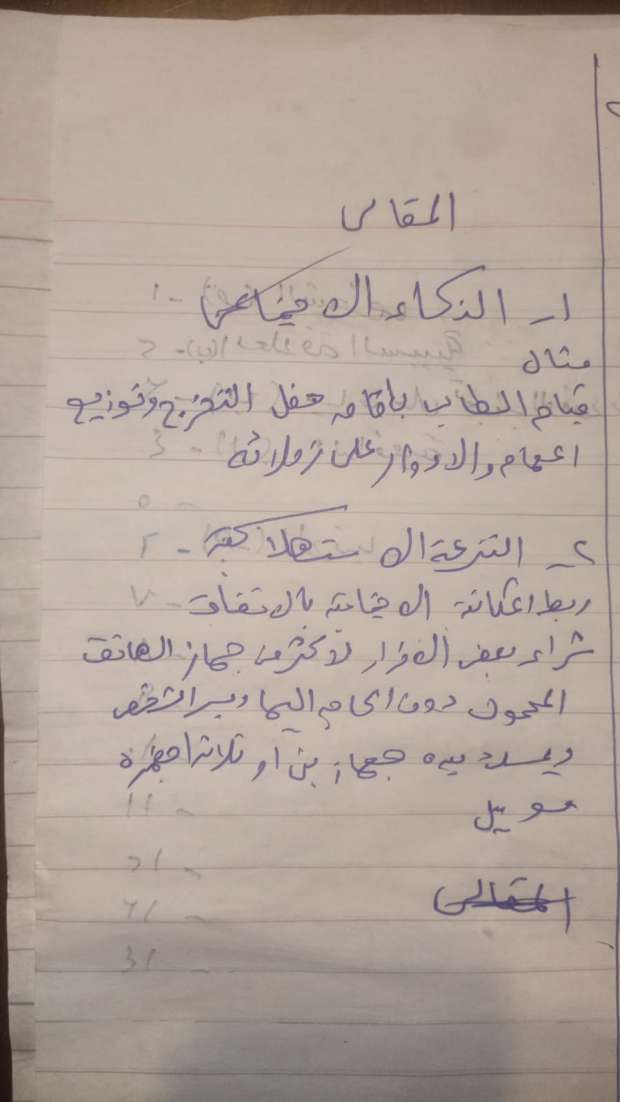 المقالى
١- الذكاء الاجتماعى
مثال
قيام الطالب باقامه حفل التخرج وتوزيع
المهام والادوار على زملائه
٢- النزعة الاستهلاكية
ربط المكانة الاجتماعية بالانفاق
شراء بعض الافراد لاكثر من جهاز الهاتف
المحمول دون الحاجه اليها وبين الشخص
وبين يديه جهازين او ثلاثه اجهزه
موبيل
المقالى